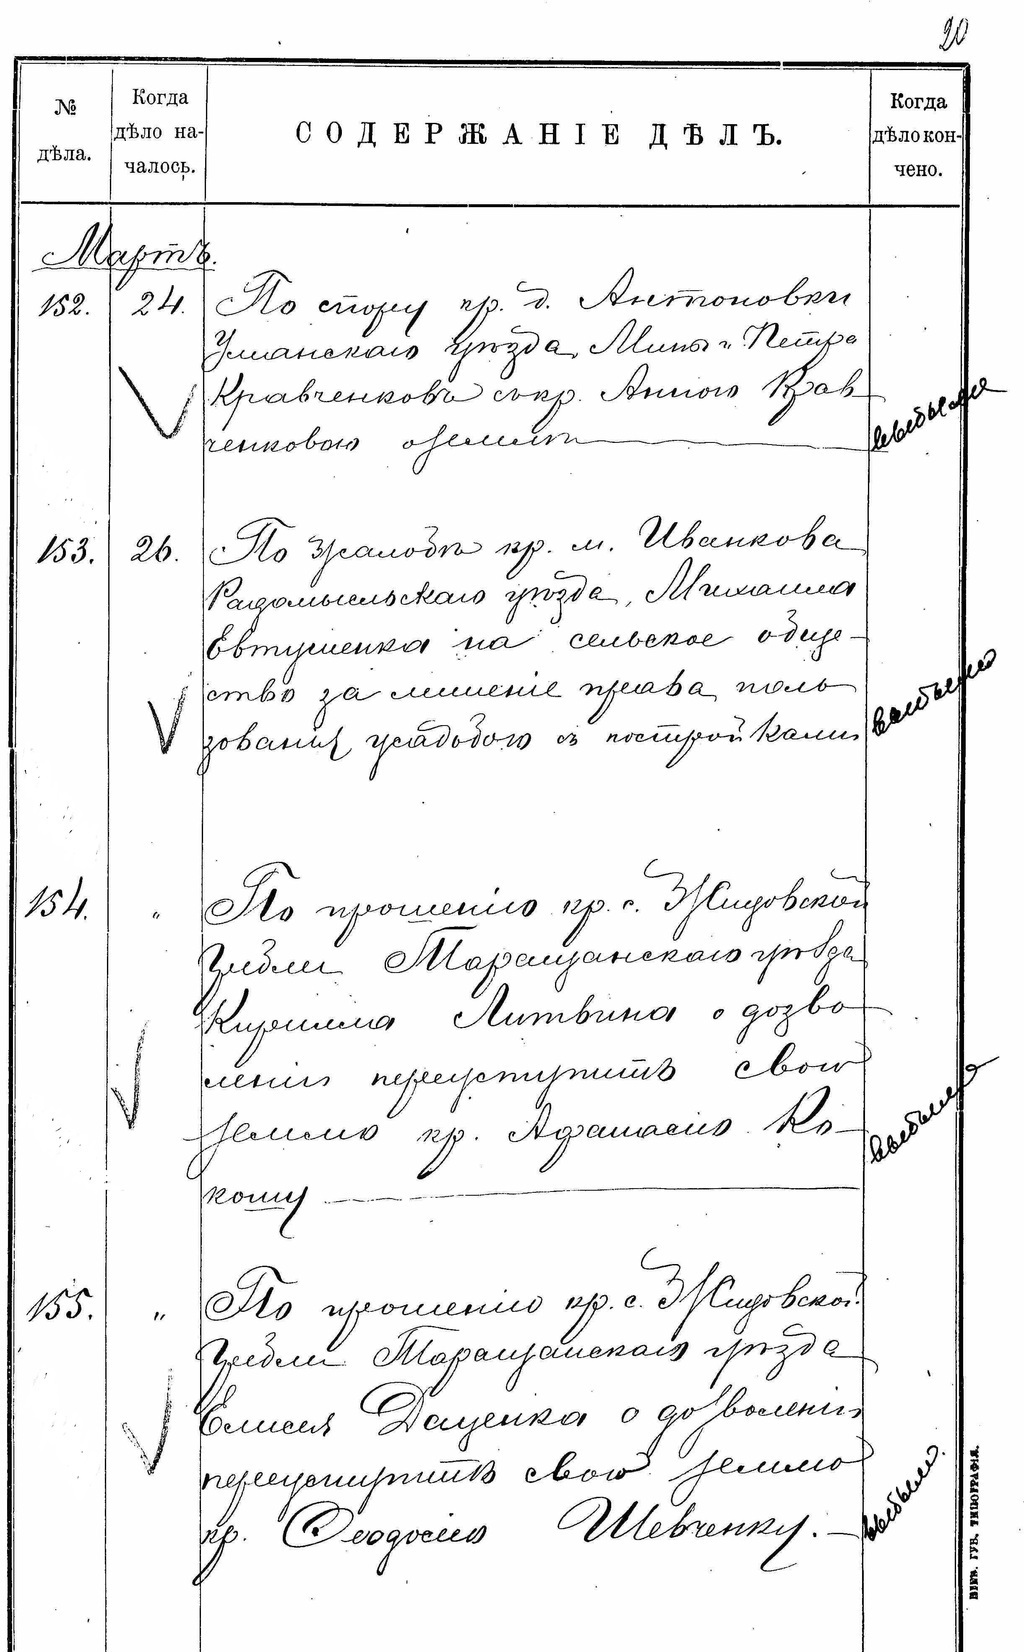 20
№
дѣла.
Когда
дѣло на-
чалось.
СОДЕРЖАНІЕ ДѢЛЪ.
Когда
дѣло кон-
чено.
Мартъ.
152. 24. По спору кр. д. Антоновки
Уманскаго уѣзда, Мины и Петра
Кравченковъ съ кр. Анною Крав
ченковою о землѣ
выбыло
153. 26. По жалобѣ кр. м. Иванкова
Радомысльскаго уѣзда, Михаила
Евтушенка на сельское обще-
ство за лишеніе права поль
зованія усадьбою съ постройками
выбыло
154. „ По прошенію кр. с. Жидовской
Гребли Таращанскаго уѣзда
Кирилла Литвина о дозво
леніи переуступить свою
землю кр. Афанасію Ко-
кошу
выбыло
155. „ По прошенію кр. с. Жидовской
Гребли Таращанскаго уѣзда
Елисея Даценка о дозволеніи
переуступить свою землю
кр. Ѳеодосію Шевченку.
выбыло.
КІЕВ. ГУБ. ТИПОГРАФІЯ.